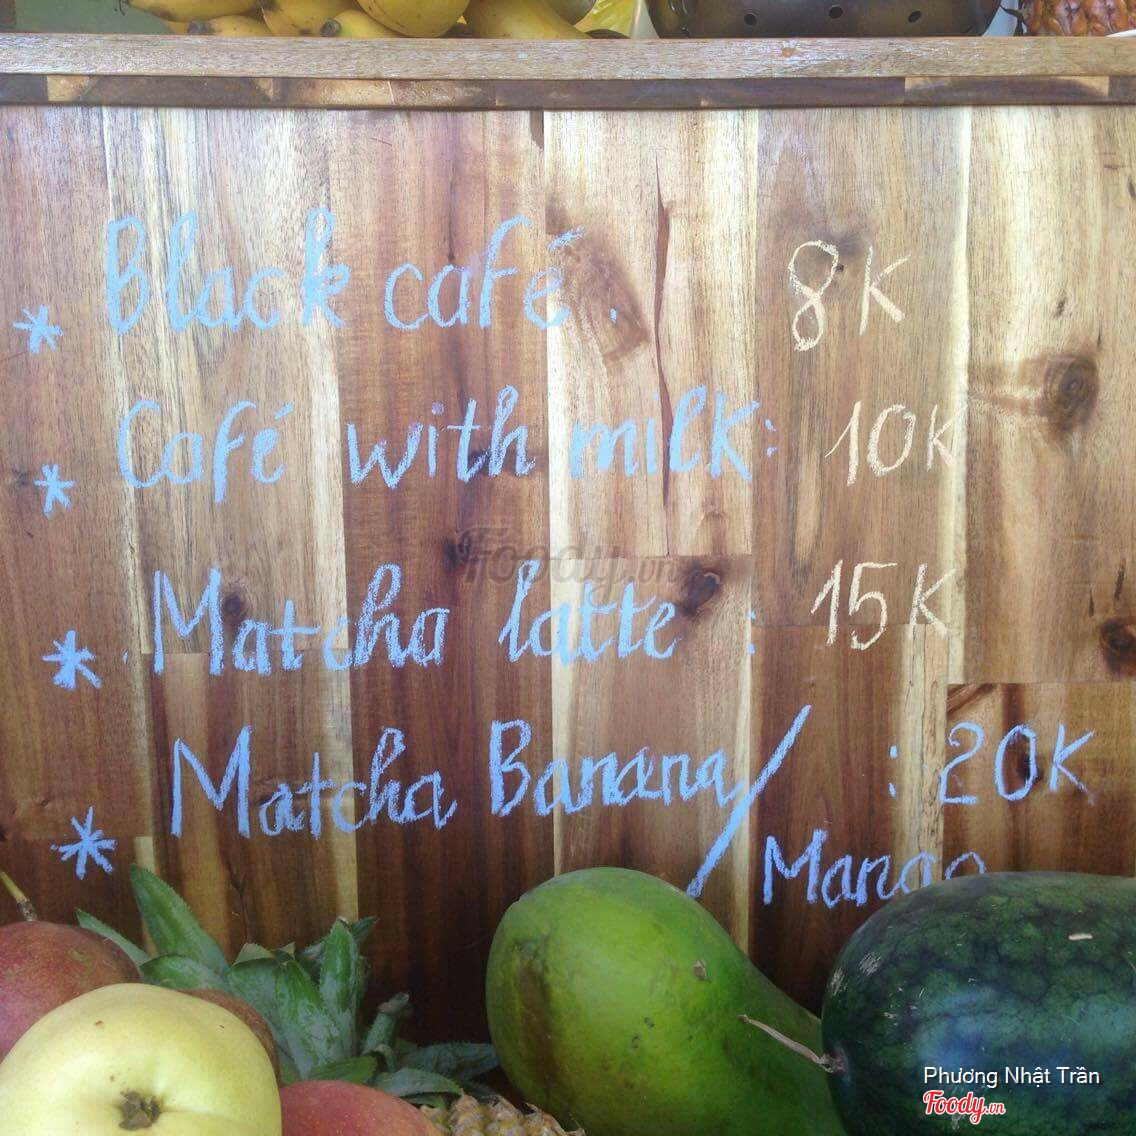 * Black café. 8K
* Café with milk: 10K
* Matcha latte : 15K
* Matcha Banana/ : 20K
Mango
Foody.vn
Phương Nhật Trần
Foody.vn